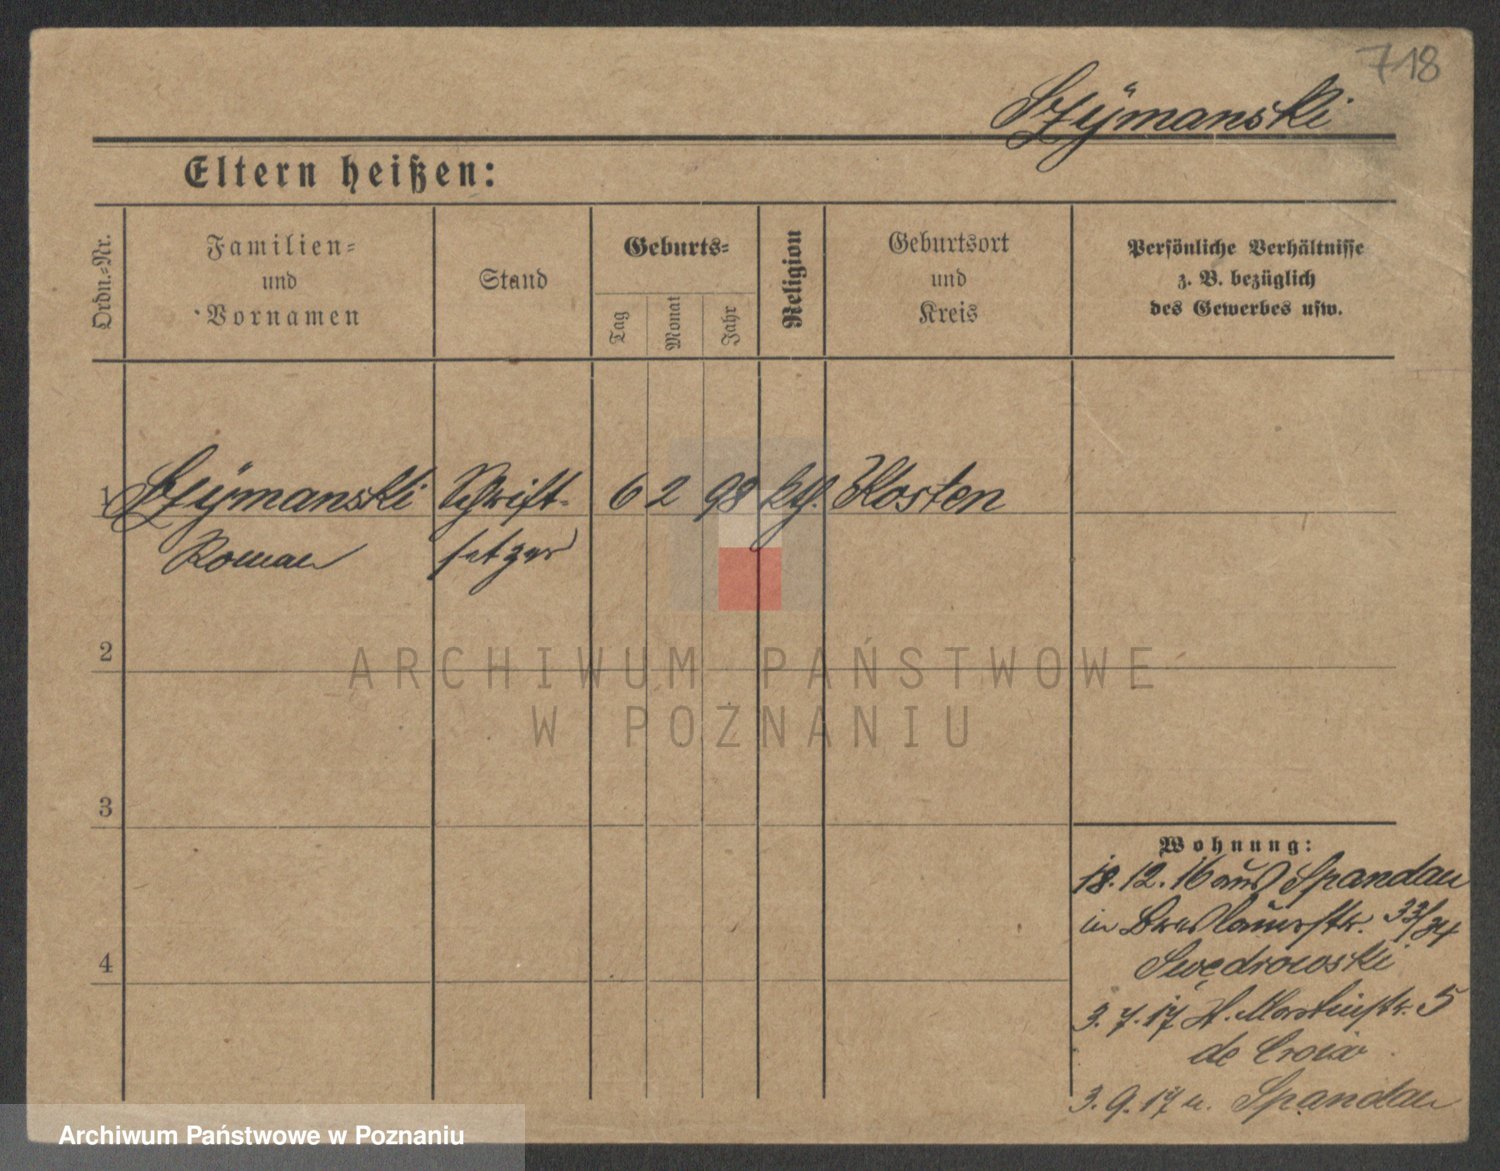 718
Szÿmanski
Eltern heißen:
Ordn.=Nr.
Familien=
und
Vornamen
Stand
Geburts=
Tag
Monat
Jahr
Religion
Geburtsort
und
Kreis
Persönliche Verhältnisse
z. B. bezüglich
des Gewerbes usw.
1 Szÿmanski Schrift- 6 2 98 kth. Kosten
Roman setzer
2
ARCHIWUM PAŃSTWOWE
W POZNANIU
3
Wohnung:
18.12.16 aus Spandau
in Breslauerstr. 33/34
Swędrowski
4
3.7.17 St. Martinstr. 5
de Croix
3.9.17 n. Spandau
Archiwum Państwowe w Poznaniu